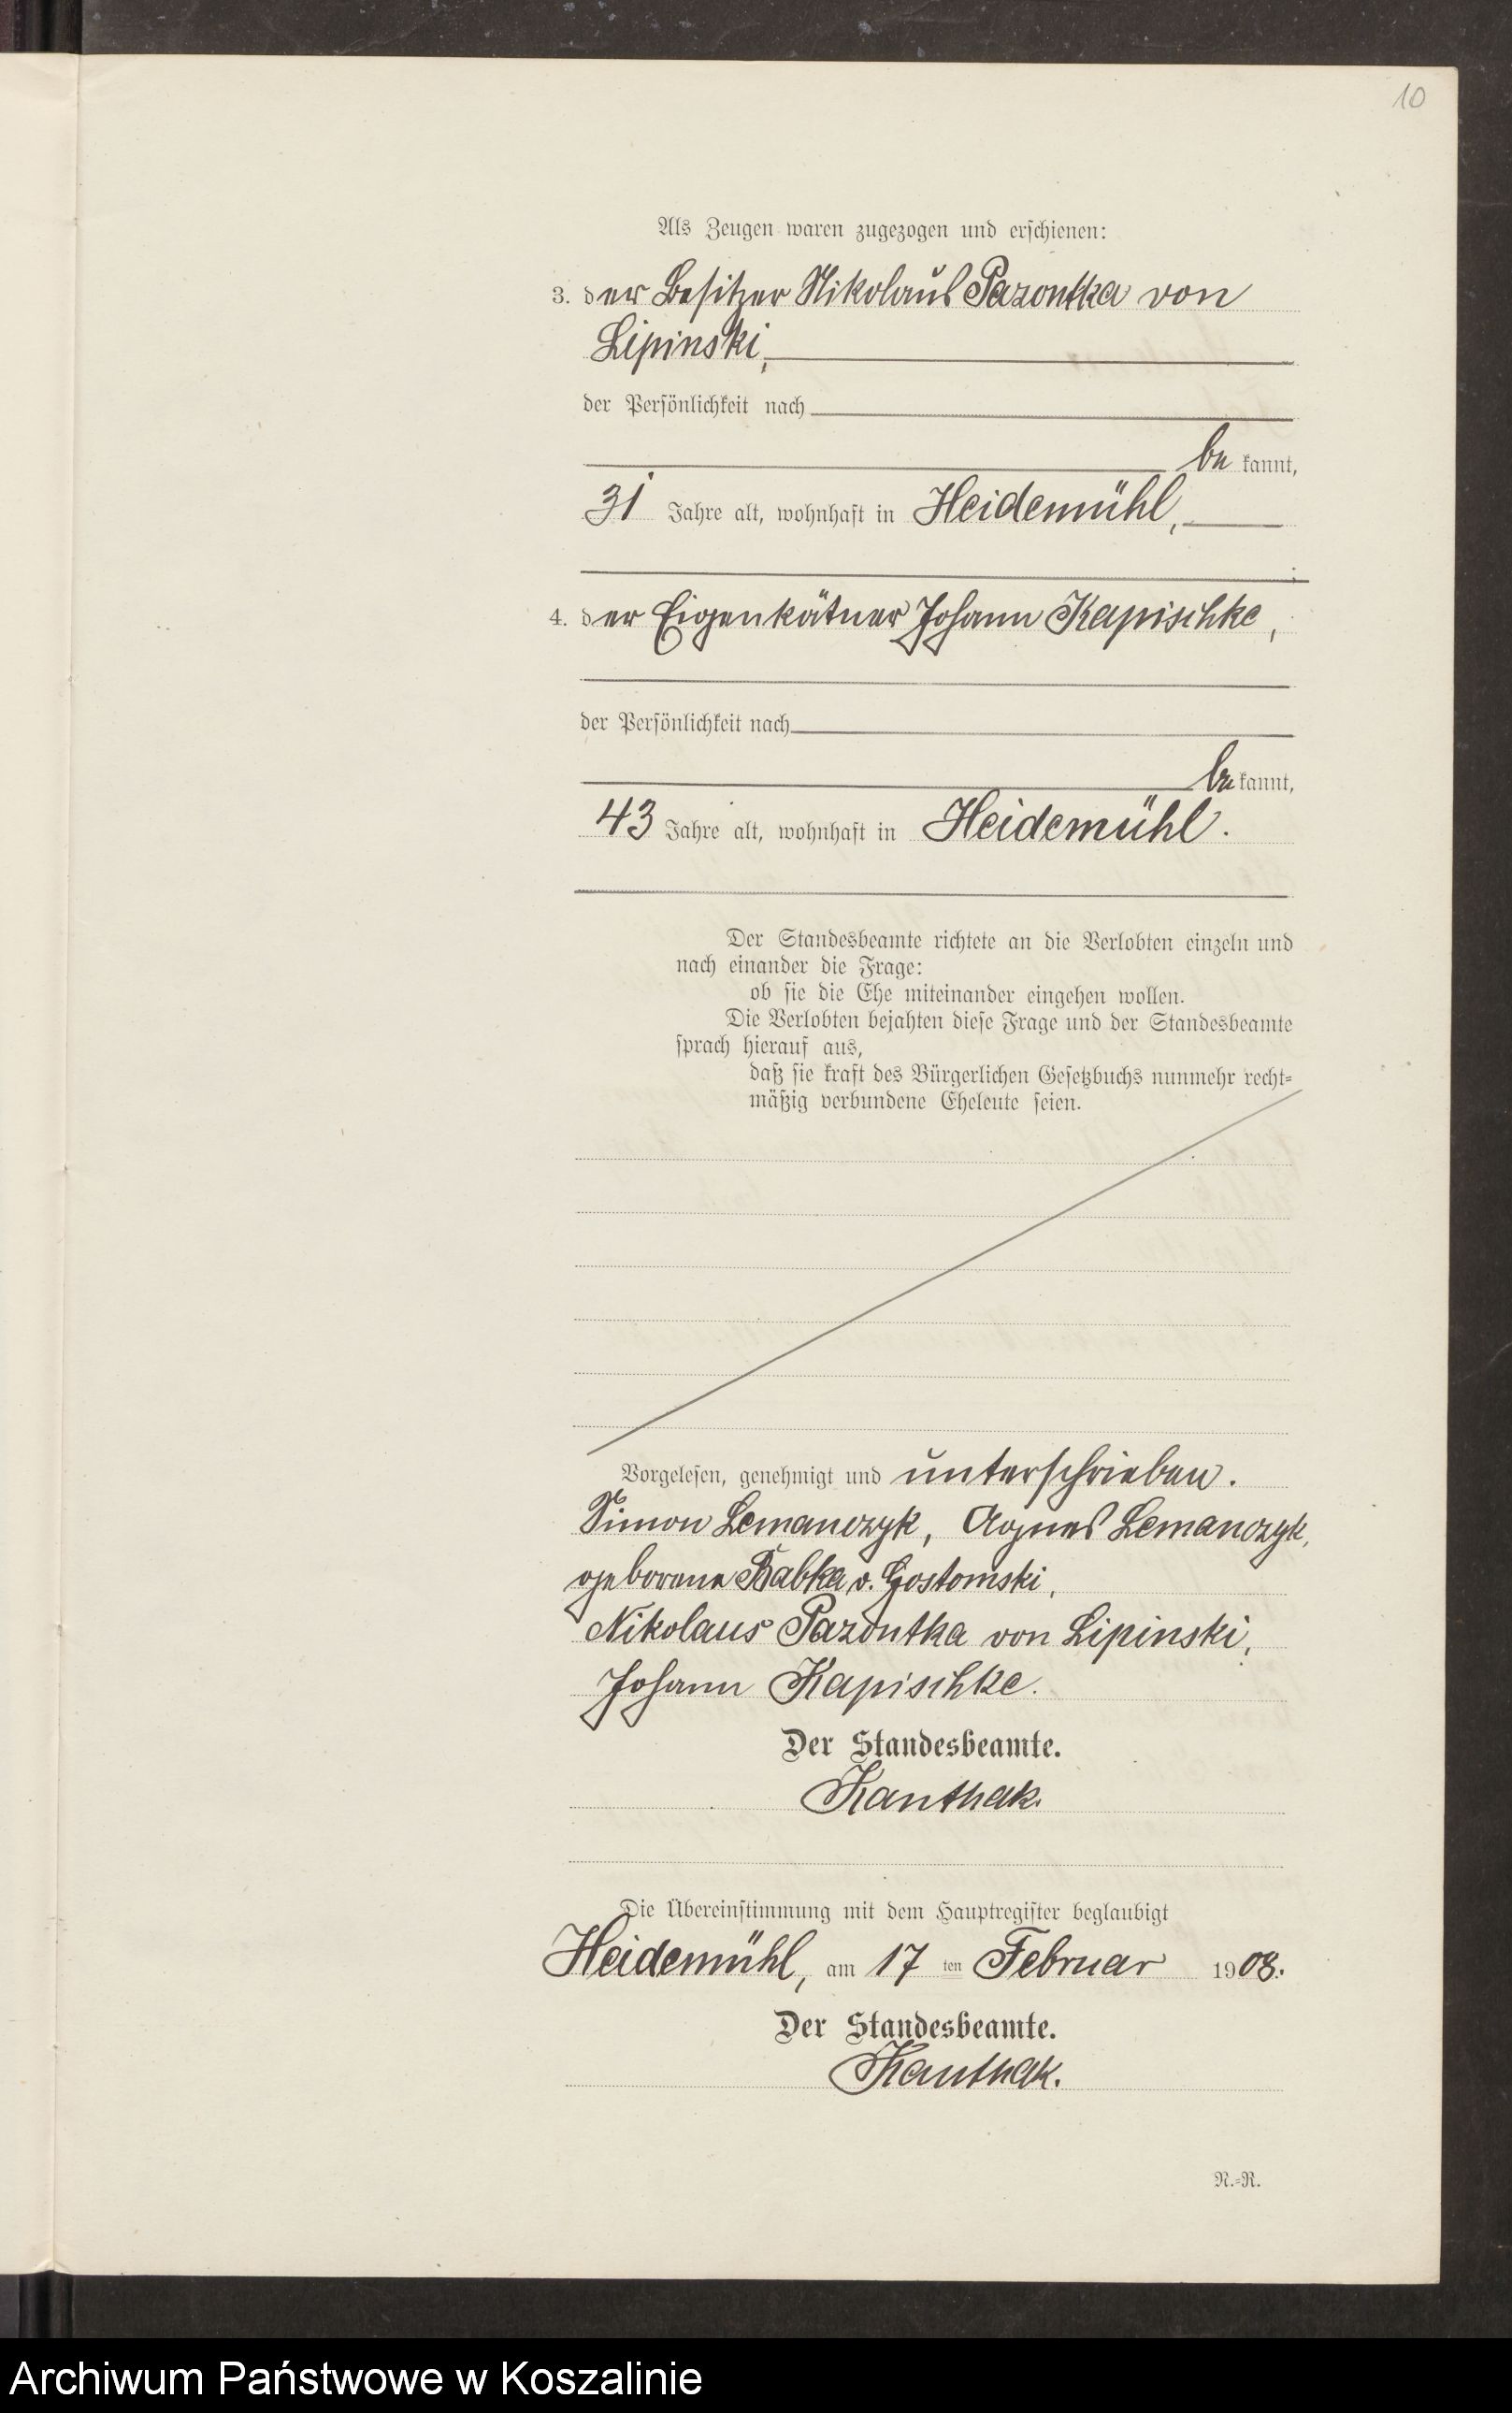 10
Als Zeugen waren zugezogen und erschienen:
3. der Besitzer Nikolaus Pazontka von
Lipinski,
der Persönlichkeit nach
be kannt,
31 Jahre alt, wohnhaft in Heidemühl,
;
4. der Eigenkätner Johann Kapischke,
der Persönlichkeit nach
be kannt,
43 Jahre alt, wohnhaft in Heidemühl.
Der Standesbeamte richtete an die Verlobten einzeln und
nach einander die Frage:
ob sie die Ehe miteinander eingehen wollen.
Die Verlobten bejahten diese Frage und der Standesbeamte
sprach hierauf aus,
daß sie kraft des Bürgerlichen Gesetzbuchs nunmehr recht=
mäßig verbundene Eheleute seien.
Vorgelesen, genehmigt und unterschrieben.
Simon Lemanczyk, Agnes Lemanczyk,
geborene Babka v. Gostomski,
Nikolaus Pazontka von Lipinski,
Johann Kapischke.
Der Standesbeamte.
Kanthak.
Die Übereinstimmung mit dem Hauptregister beglaubigt
Heidemühl, am 17 ten Februar 1908.
Der Standesbeamte.
Kanthak.
N.=R.
Archiwum Państwowe w Koszalinie